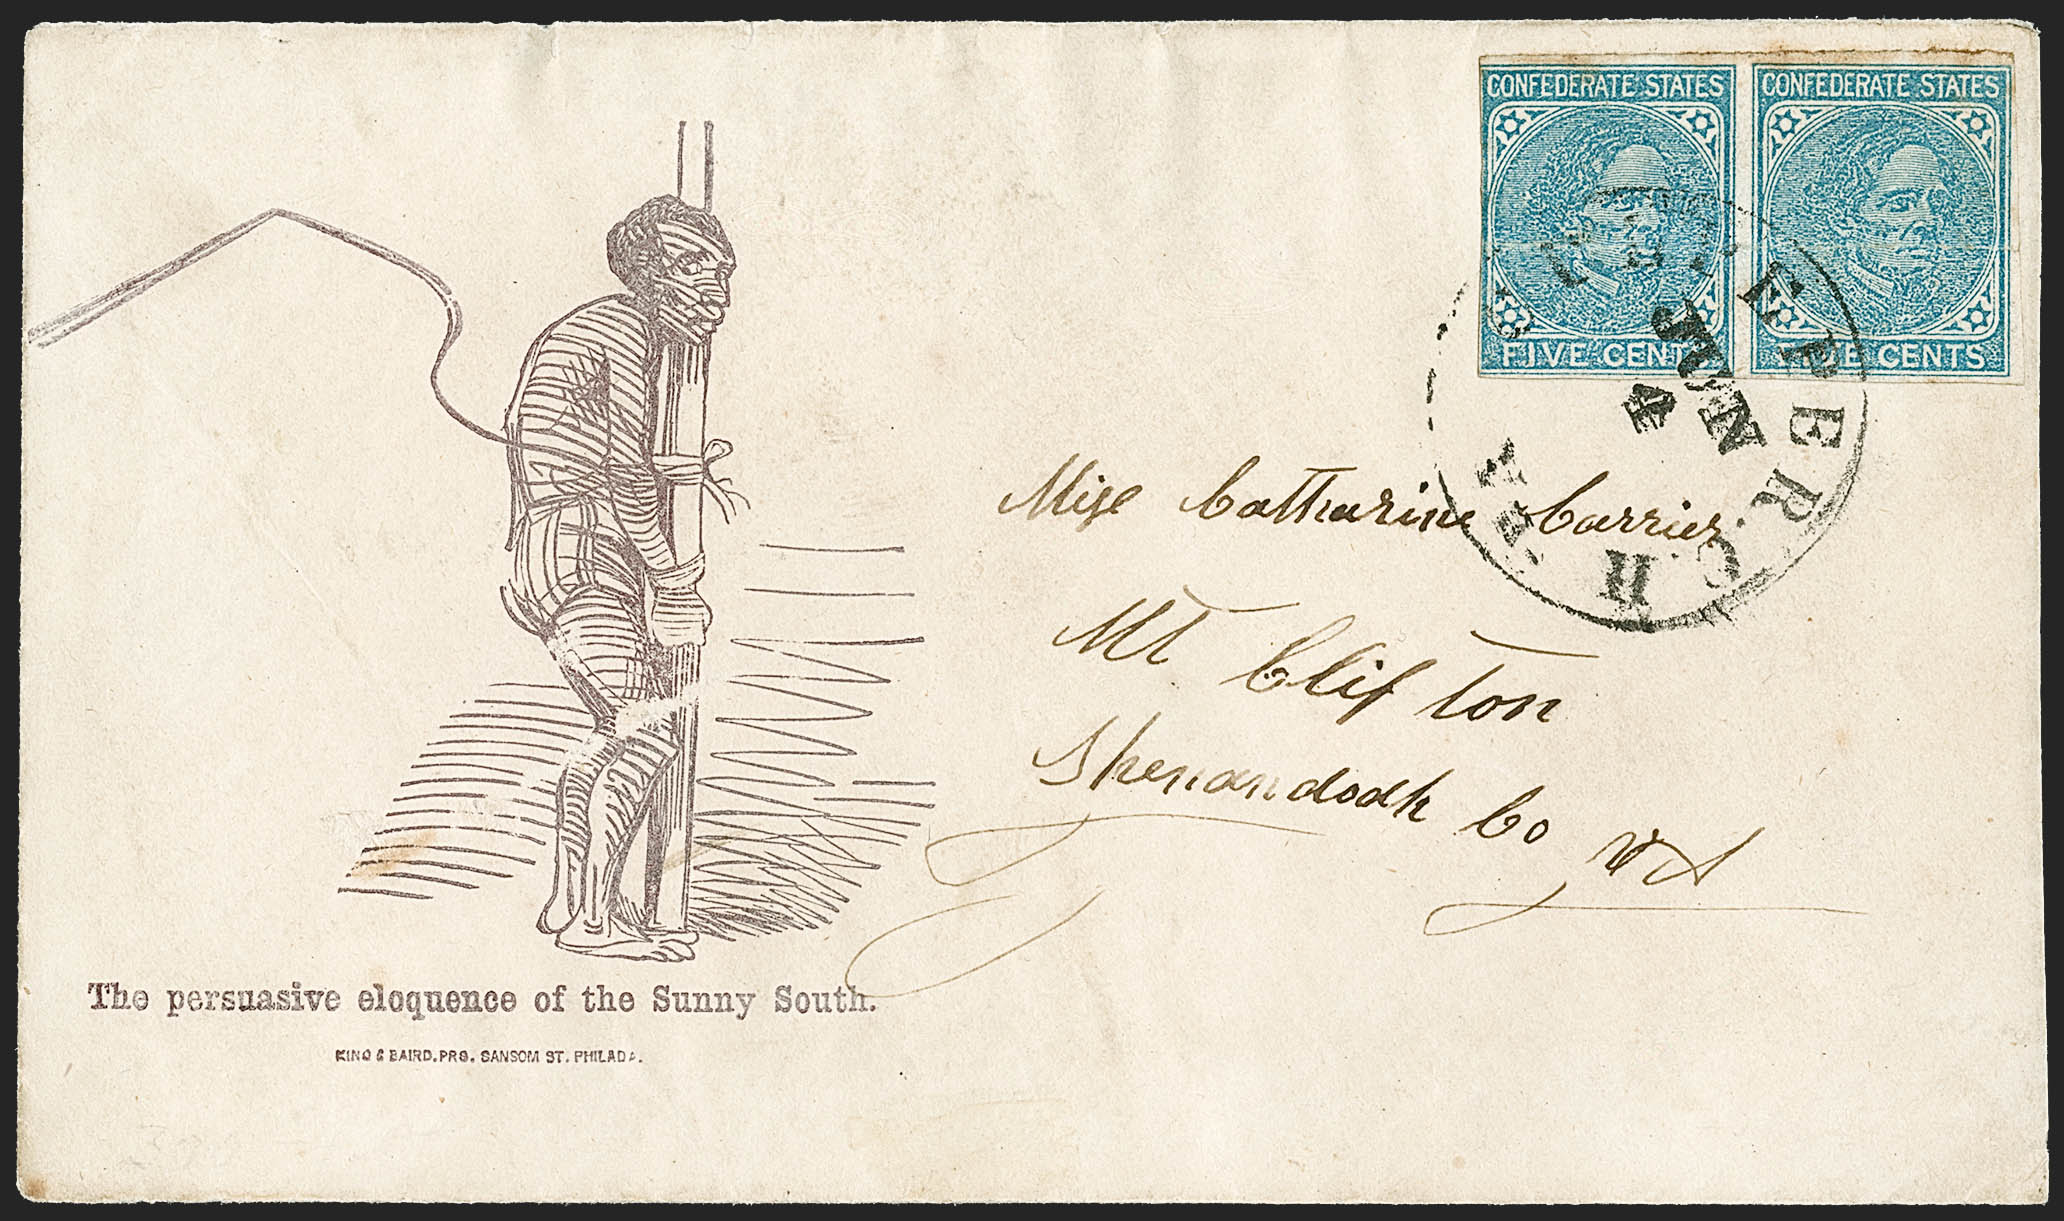 CONFEDERATE STATES
FIVE CENTS
CONFEDERATE STATES
FIVE CENTS
CULPEPER C. H.
JUN
4
Miss Catharine Carrier
Mt Clifton
Shenandoah Co VA
The persuasive eloquence of the Sunny South.
KING & BAIRD, PRS. SANSOM ST. PHILADA.